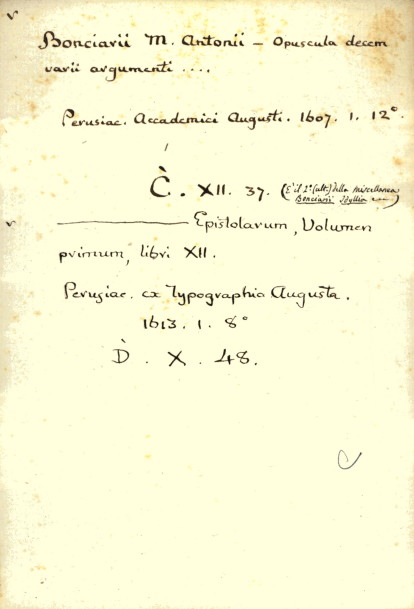 Bonciarii M. Antonii – Opuscula decem
varii argumenti ....
Perusiae. Accademici Augusti. 1607. 1. 12°
È. XII. 37. (È il 2° (ult.) della miscellanea
Bonciarii Idyllia)
Epistolarum, Volumen
primum, libri XII.
Perusiae. ex Typographia Augusta.
1613. 1. 8°
D̀. X. 48.